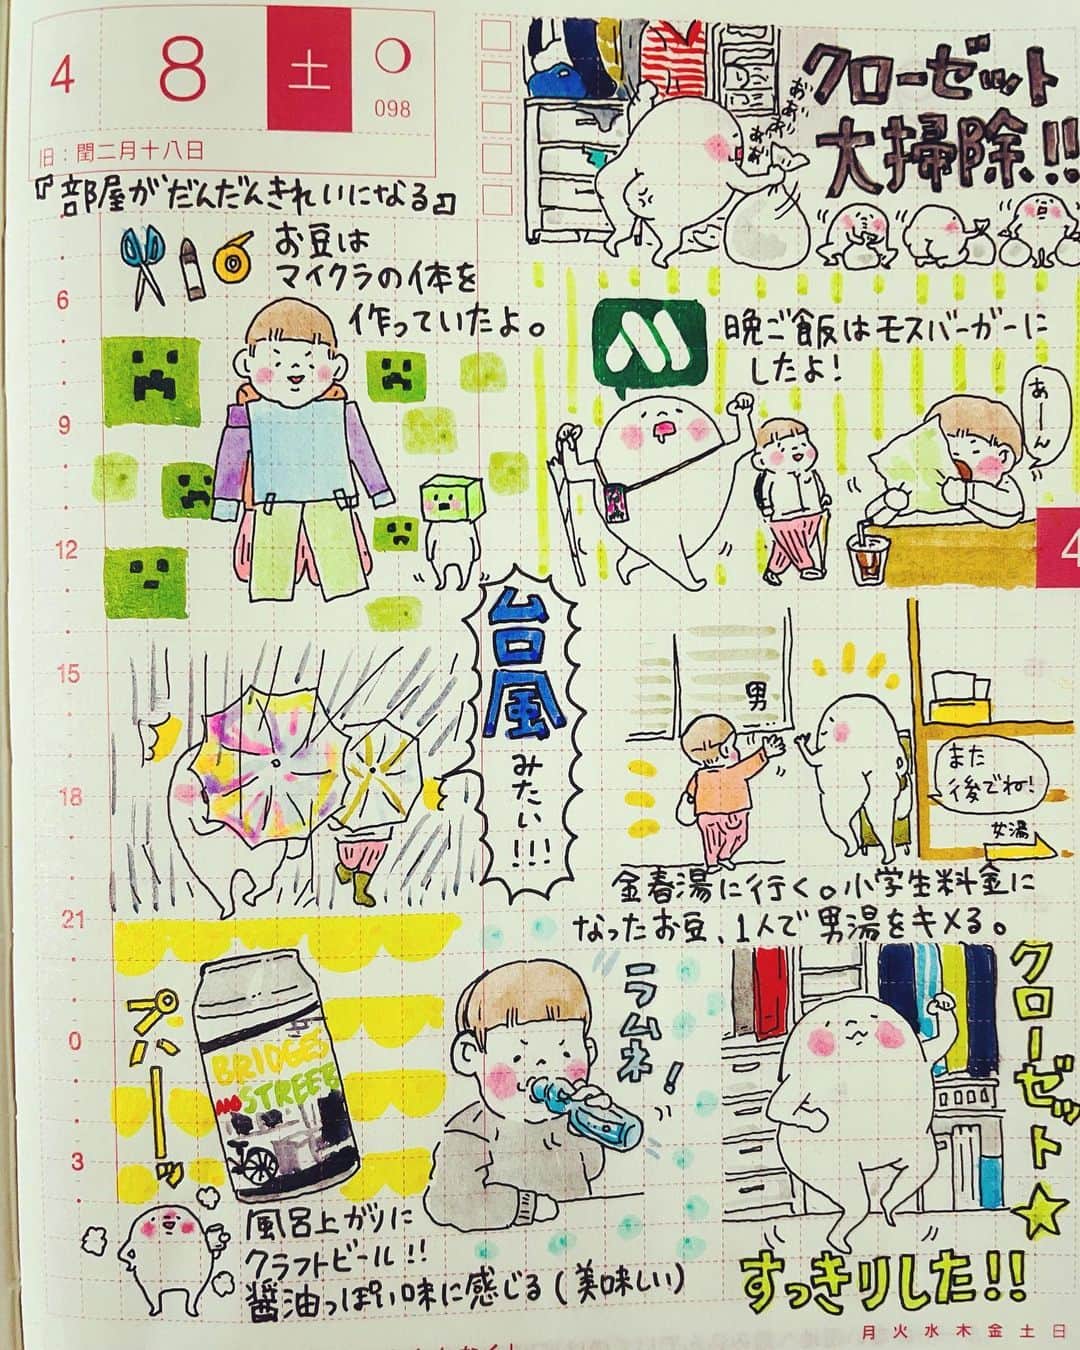 4 8 土
098
旧:閏二月十八日
『部屋がだんだんきれいになる』
クローゼット
大掃除!!
お豆は
マイクラの体を
作っていたよ。
晩ご飯はモスバーガーに
したよ!
あーん
6
9
12
4
台風
みたい!!!
男
また
後でね!
女湯
15
18
21
金春湯に行く。小学生料金に
なったお豆、1人で男湯をキメる。
クハーーッ
BRIDGES
STREET
ラムネ!
0
3
風呂上がりに
クラフトビール!!
醤油っぽい味に感じる(美味しい)
クローゼット☆
すっきりした!!
月 火 水 木 金 土 日